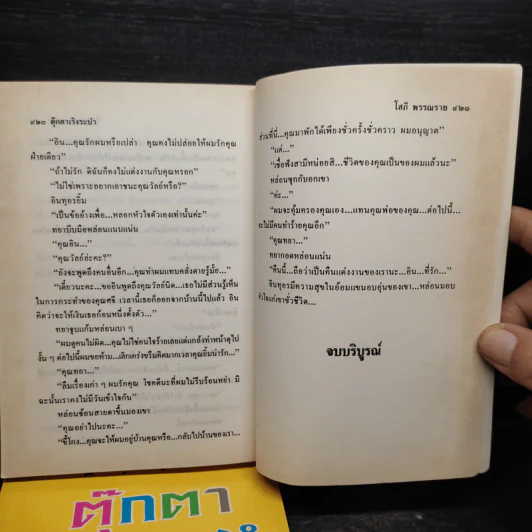 ๔๒๐ ตุ๊กตาเริงระบำ
“อิน...คุณรักผมหรือเปล่า คุณคงไม่ปล่อยให้ผมรักคุณ
ฝ่ายเดียว”
“ถ้าไม่รัก ดิฉันก็คงไม่แต่งงานกับคุณหรอก”
“ไม่ใช่เพราะอยากเอาชนะคุณวัลย์หรือ?”
อินทุอรยิ้ม
“เป็นข้ออ้างเพื่อ...หลอกหัวใจตัวเองเท่านั้นค่ะ”
ทยาบีบมือหล่อนแนบแน่น
“คุณอิน...”
“คุณวัลย์ล่ะคะ?”
“ยังจะพูดถึงคนอื่นอีก...คุณทำผมแทบคลั่งตายรู้มั้ย...”
“เดี๋ยวนะคะ...ขออินพูดถึงคุณวัลย์นิด...เธอไม่มีส่วนรู้เห็น
ในการกระทำของคุณศรี เวลานี้เธอก็ออกจากบ้านนี้ไปแล้ว อิน
คิดว่าจะให้เงินเธอก้อนหนึ่งตั้งตัว...”
ทยาจูบแก้มหล่อนเบา ๆ
“ผมดูคนไม่ผิด...คุณไม่ใช่คนใจร้ายเลยแต่แกล้งทำหน้าดุไป
งั้น ๆ ต่อไปนี้ผมขอห้าม...เลิกเคร่งขรึมคิดมากเวลาคุณยิ้มน่ารัก...”
“คุณทยา...”
“ลืมเรื่องเก่า ๆ ผมรักคุณ โชคดีนะที่ผมไม่รีบร้อนหย่า มิ
ฉะนั้นเราคงไม่มีวันเข้าใจกัน”
หล่อนซ้อนสายตาขึ้นมองเขา
“คุณอย่าไปนะคะ...”
“ขี้โกง...คุณจะให้ผมอยู่บ้านคุณหรือ...กลับไปบ้านของเรา...
โสภี พรรณราย ๔๒๑
ส่วนที่นี่...คุณมาพักได้เพียงชั่วครั้งชั่วคราว ผมอนุญาต”
“แต่...”
“เชื่อฟังสามีหน่อยสิ...ชีวิตของคุณเป็นของผมแล้วนะ”
หล่อนซุกกับอกเขา
“ค่ะ...”
“ผมจะคุ้มครองคุณเอง...แทนคุณพ่อของคุณ...ต่อไปนี้...
จะไม่มีคนทำร้ายคุณอีก”
“คุณทยา...”
ทยากอดหล่อนแน่น
“คืนนี้...ถือว่าเป็นคืนแต่งงานของเรานะ...อิน...ที่รัก...”
อินทุอรมีความสุขในอ้อมแขนอบอุ่นของเขา...หล่อนมอบ
หัวใจแก่เขาชั่วชีวิต...
จบบริบูรณ์
ตุ๊กตา